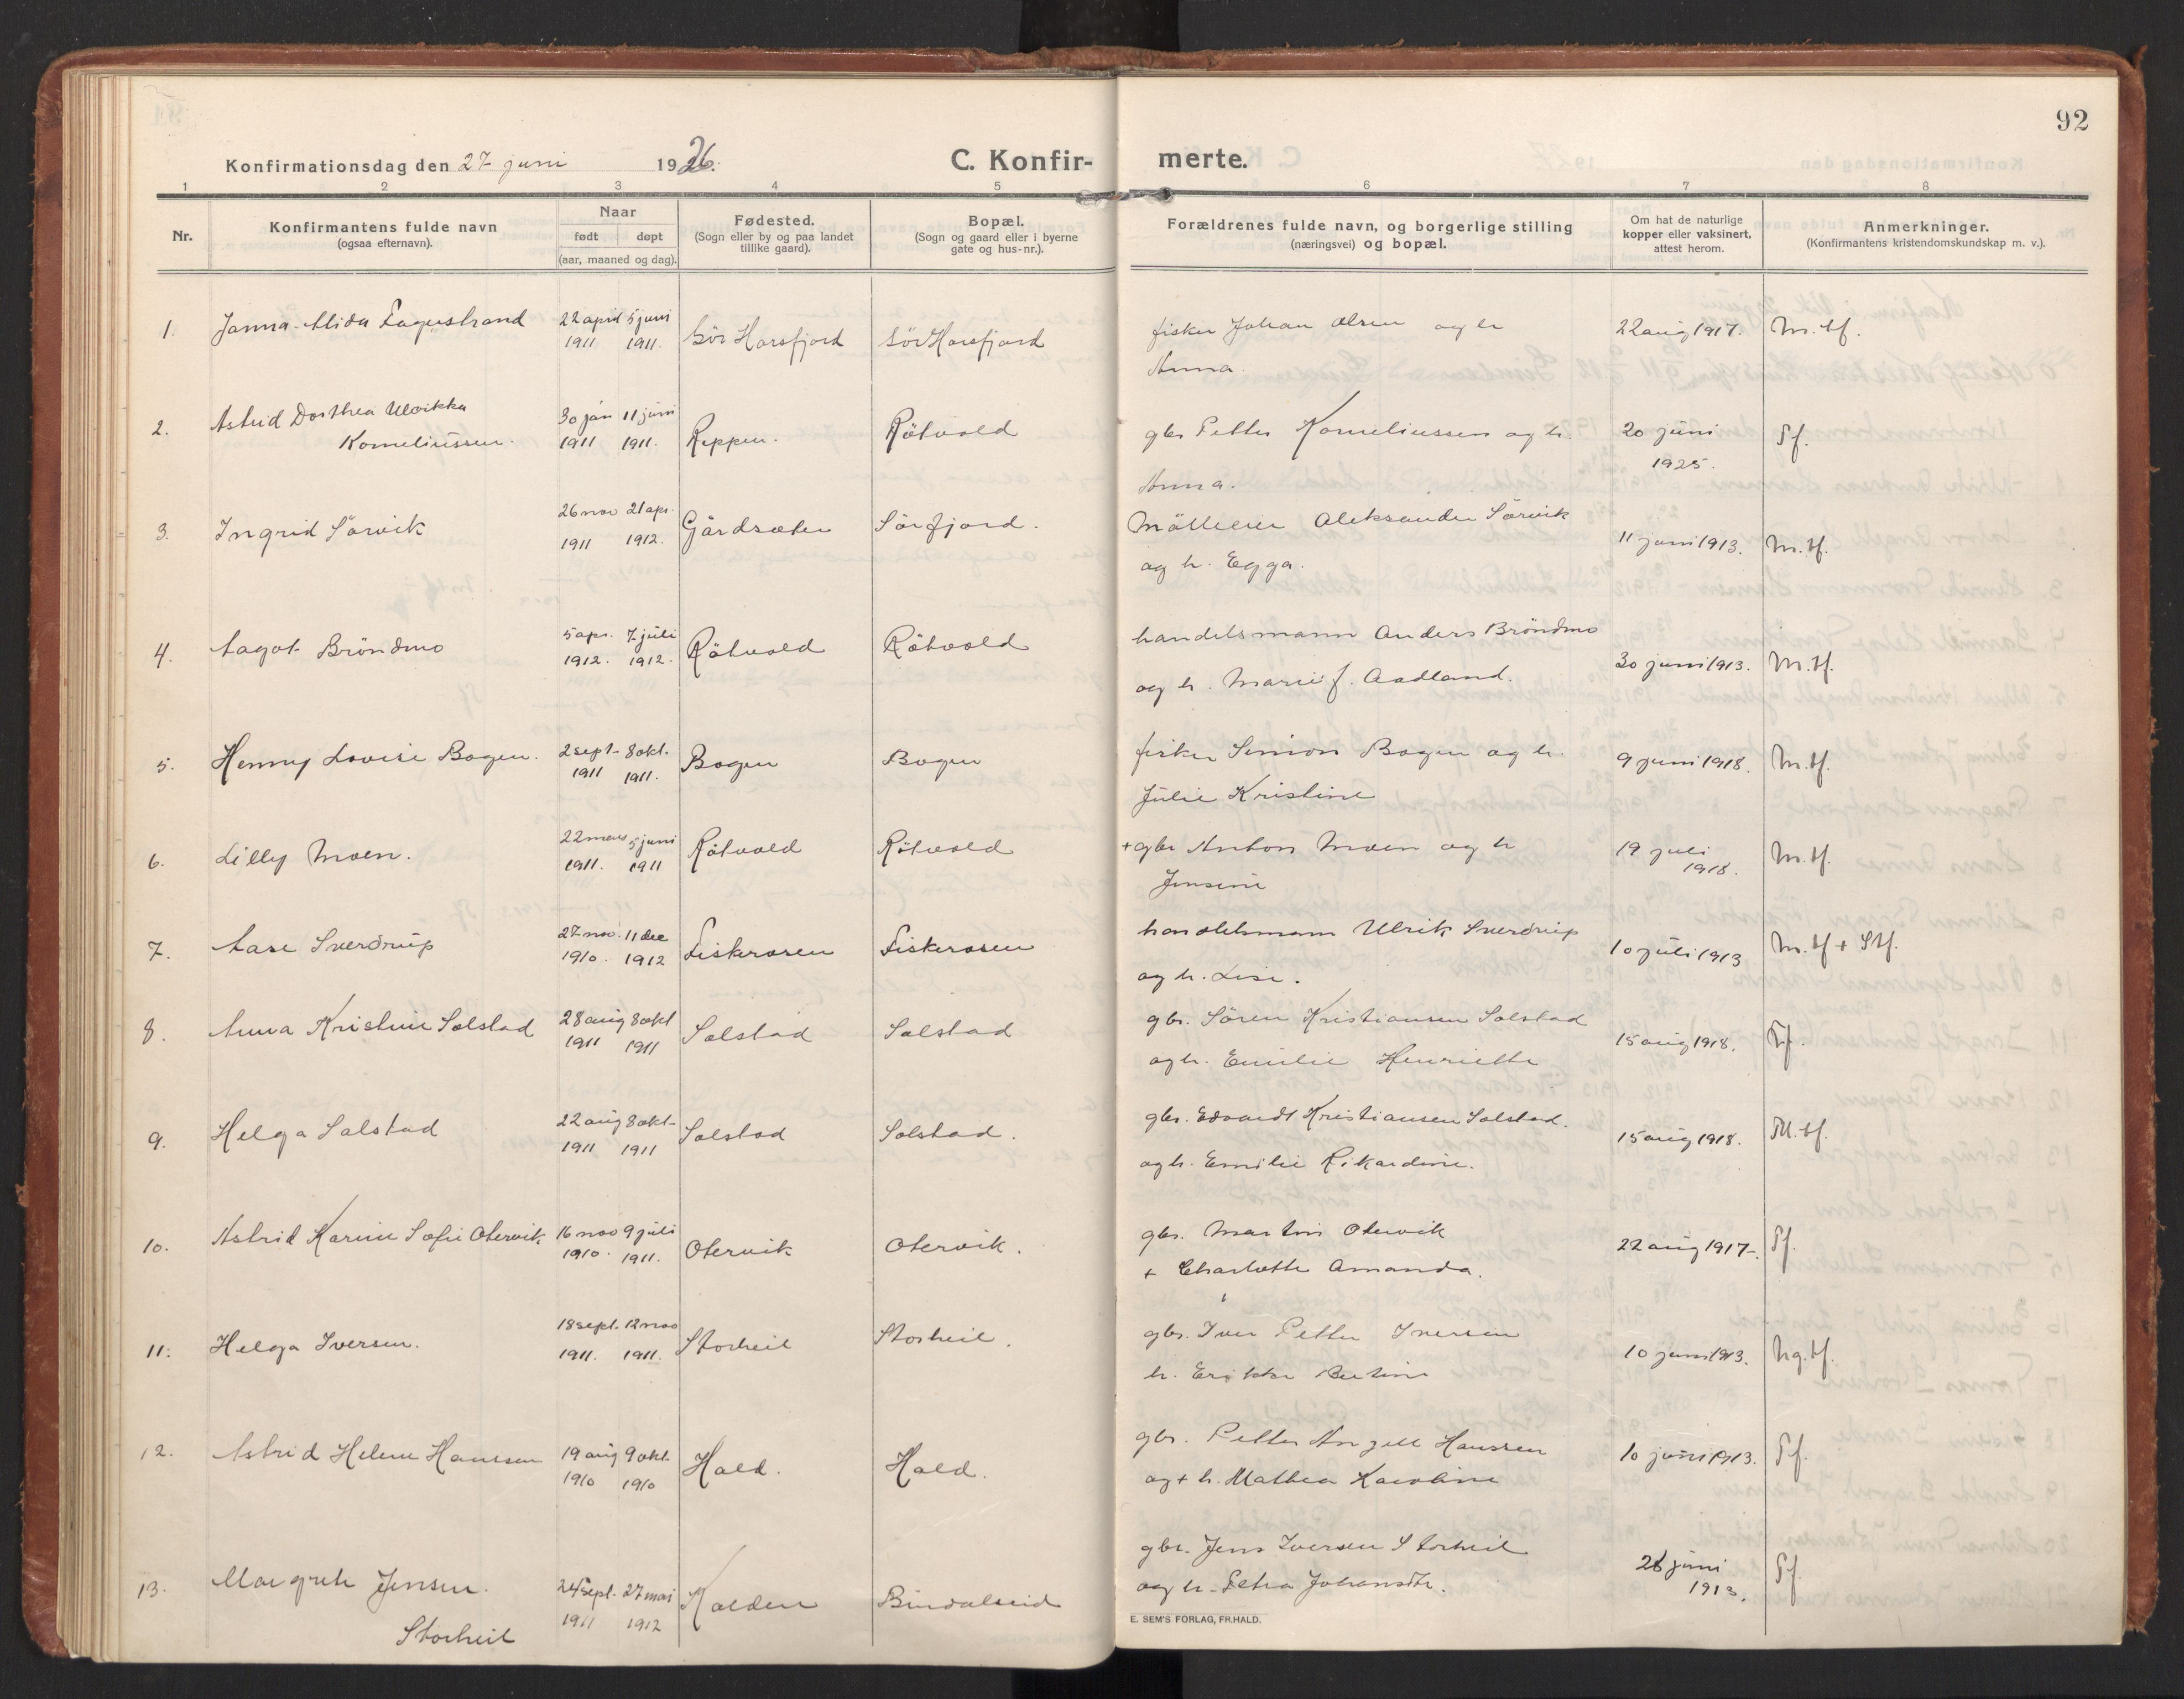 92
Konfirmationsdag den 27 juni 1926.
C. Konfir- merte.
1 2 3 4 5 6 7 8
Nr.
Konfirmantens fulde navn
(ogsaa efternavn).
Naar
født døpt
(aar, maaned og dag).
Fødested.
(Sogn eller by og paa landet
tillike gaard).
Bopæl.
(Sogn og gaard eller i byerne
gate og hus-nr.).
Forældrenes fulde navn, og borgerlige stilling
(næringsvei) og bopæl.
Om hat de naturlige
kopper eller vaksinert,
attest herom.
Anmerkninger.
(Konfirmantens kristendomskundskap m. v.).
1. Janna Alida Fagerstrand 22 april 5 juni Sör Horsfjord Sör Horsfjord fisker Johan Olsen og h 22 aug 1917. M. tf.
1911 1911. Anna
2. Astrid Dorthea Ulrikka 30 jan 11 juni Reppen. Rötvold gbr Petter Korneliussen og h. 20 juni Tf.
Korneliussen. 1911 1911. Anna. 1925.
3. Ingrid Sörvik 26 nov 21 apr. Gårdsæter Sörfjord. Mölleeier Aleksander Sörvik 11 juni 1913. M. tf.
1911 1912. og h. Egga.
4. Aagot Bröndmo 5 apr. 7 juli Rötvold Rötvold handelsmann Anders Bröndmo 30 juni 1913. M. tf.
1912. 1912. og h. Marie f. Aadland.
5. Henny Lovise Bogen. 2 sept. 8 okt. Bogen Bogen fisker Simon Bogen og h. 9 juni 1918. M. tf.
1911 1911. Julie Kristine
6. Lilly Moen. 22 mars 5 juni Rötvold Rötvold + gbr Anton Moen og h 19 juli M. tf.
1911. 1911 Jensine 1918.
7. Aase Sverdrup 27 nov. 11 dec Fiskerosen Fiskerosen handelsmann Ulrik Sverdrup 10 juli 1913 M. tf + Stf.
1910. 1912 og h. Lise.
8. Anna Kristine Solstad 28 aug 8 okt Solstad Solstad gbr. Sören Kristiansen Solstad 15 aug 1918. Tf.
1911 1911 og h. Emilie Henriette
9. Helga Solstad 22 aug 8 okt Solstad Solstad. gbr. Edvardt Kristiansen Solstad. 15 aug 1918. M. tf.
1911 1911 og h. Emilie Rikardine.
10. Astrid Karine Sofie Otervik 16 nov 9 juli Otervik Otervik. gbr. Martin Otervik 22 aug 1917. Tf.
1910. 1911. + Charlotte Amanda.
11. Helga Iversen. 18 sept. 12 nov Storheil Storheil. gbr. Iver Petter Iversen 10 juni 1913. Ng. tf.
1911. 1911. h. Erikka Bertine
12. Astrid Helene Hanssen 19 aug 9 okt. Hald. Hald. gbr. Petter Angell Hanssen 10 juni 1913. Tf.
1910 1910 og + h. Mathea Karoline
13. Margrete Jensen. 24 sept. 27 mai Kalden Bindalseid gbr. Jens Iversen Storheil 28 juni Tf.
Storheil 1911 1912 og h. Petra Johansdtr. 1913.
E. SEM'S FORLAG, FR.HALD.